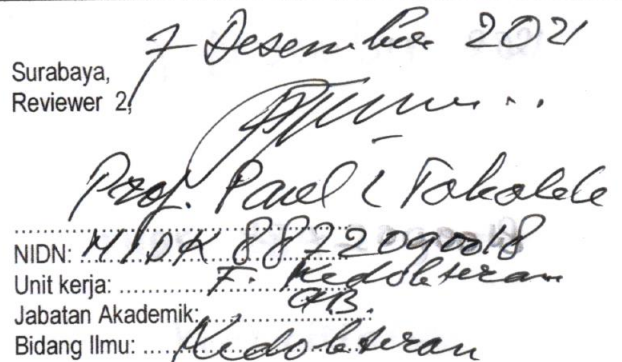 Surabaya, 7 Desember 2021
Reviewer 2,
Prof. Paul L Tahalele
NIDN: NIDK 8872090018
Unit kerja: F. Kedokteran
Jabatan Akademik: GB.
Bidang Ilmu: Kedokteran